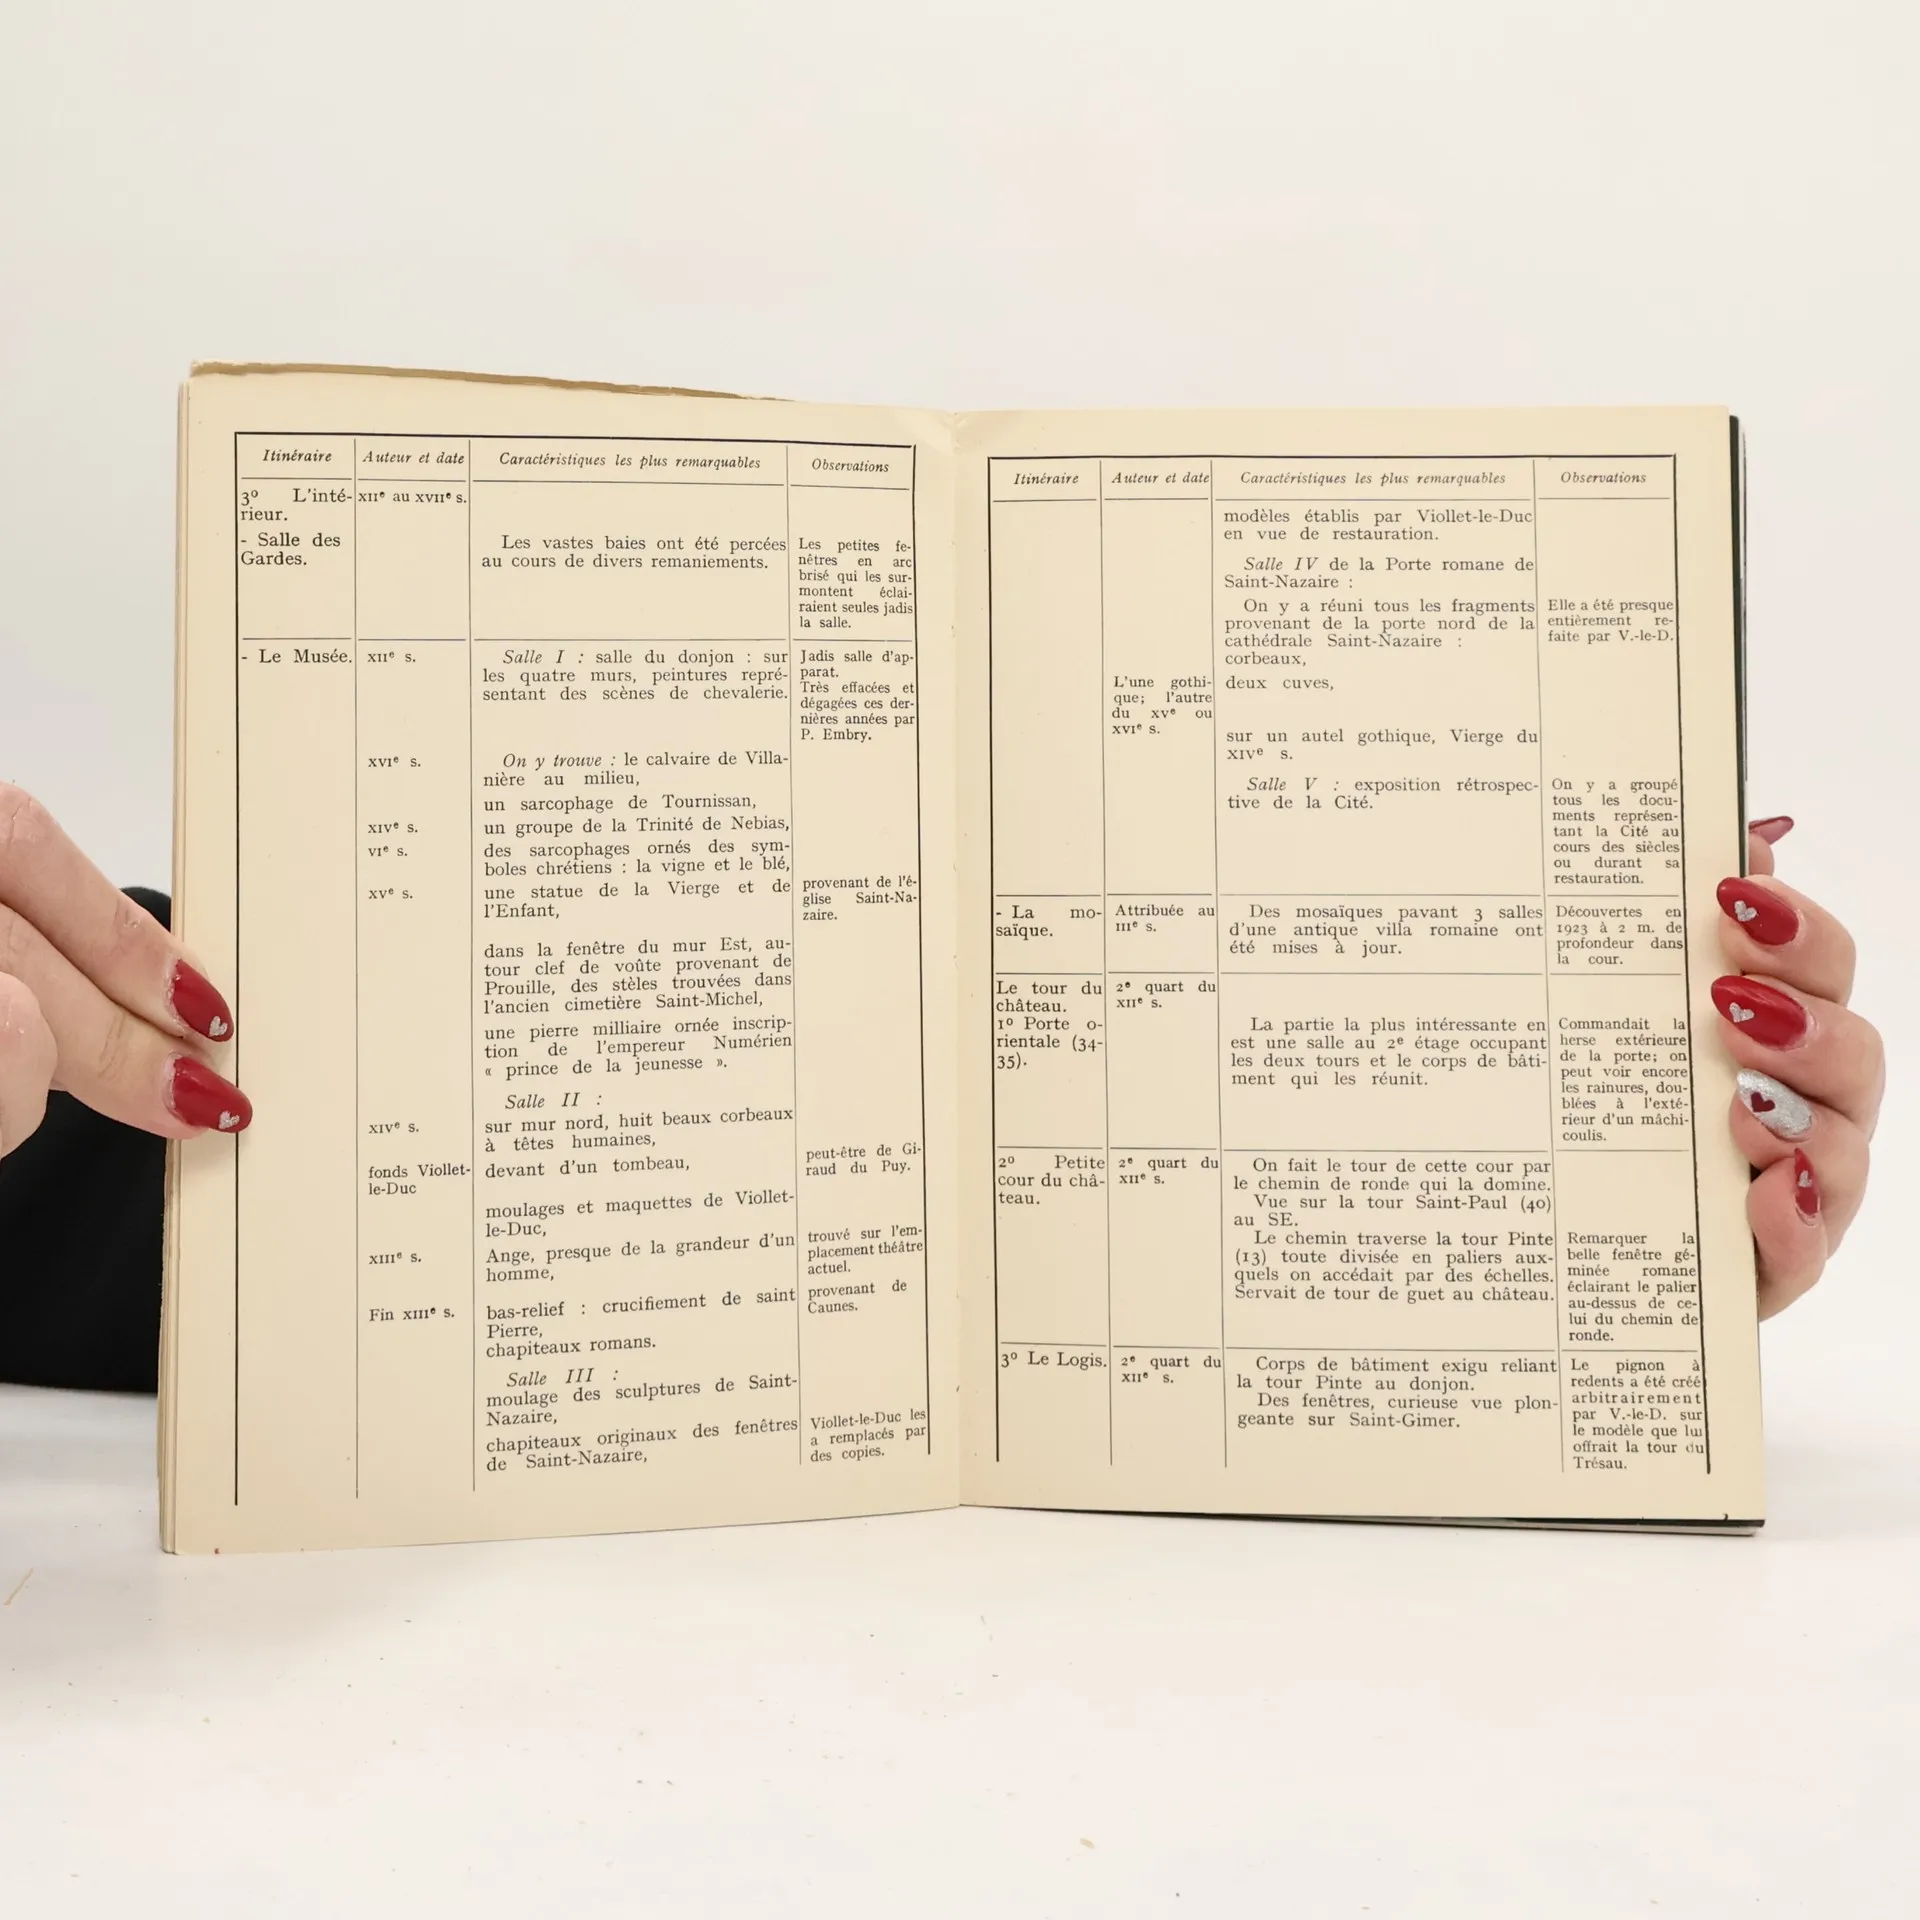 Itinéraire
Auteur et date
Caractéristiques les plus remarquables
Observations
3º L'inté-
rieur.
XIIe au XVIIe s.
- Salle des
Gardes.
Les vastes baies ont été percées
au cours de divers remaniements.
Les petites fe-
nêtres en arc
brisé qui les sur-
montent éclai-
raient seules jadis
la salle.
- Le Musée.
XIIe s.
Salle I : salle du donjon : sur
les quatre murs, peintures repré-
sentant des scènes de chevalerie.
Jadis salle d'ap-
parat.
Très effacées et
dégagées ces der-
nières années par
P. Embry.
XVIe s.
On y trouve : le calvaire de Villa-
nière au milieu,
un sarcophage de Tournissan,
XIVe s.
un groupe de la Trinité de Nebias,
VIe s.
des sarcophages ornés des sym-
boles chrétiens : la vigne et le blé,
XVe s.
une statue de la Vierge et de
l'Enfant,
provenant de l'é-
glise Saint-Na-
zaire.
dans la fenêtre du mur Est, au-
tour clef de voûte provenant de
Prouille, des stèles trouvées dans
l'ancien cimetière Saint-Michel,
une pierre milliaire ornée inscrip-
tion de l'empereur Numérien
« prince de la jeunesse ».
Salle II :
XIVe s.
sur mur nord, huit beaux corbeaux
à têtes humaines,
fonds Viollet-
le-Duc
devant d'un tombeau,
peut-être de Gi-
raud du Puy.
moulages et maquettes de Viollet-
le-Duc,
XIIIe s.
Ange, presque de la grandeur d'un
homme,
trouvé sur l'em-
placement théâtre
actuel.
Fin XIIIe s.
bas-relief : crucifiement de saint
Pierre,
chapiteaux romans.
provenant de
Caunes.
Salle III :
moulage des sculptures de Saint-
Nazaire,
chapiteaux originaux des fenêtres
de Saint-Nazaire,
Viollet-le-Duc les
a remplacés par
des copies.
Itinéraire
Auteur et date
Caractéristiques les plus remarquables
Observations
modèles établis par Viollet-le-Duc
en vue de restauration.
Salle IV de la Porte romane de
Saint-Nazaire :
On y a réuni tous les fragments
provenant de la porte nord de la
cathédrale Saint-Nazaire :
corbeaux,
Elle a été presque
entièrement re-
faite par V.-le-D.
L'une gothi-
que; l'autre
du XVe ou
XVIe s.
deux cuves,
sur un autel gothique, Vierge du
XIVe s.
Salle V : exposition rétrospec-
tive de la Cité.
On y a groupé
tous les docu-
ments représen-
tant la Cité au
cours des siècles
ou durant sa
restauration.
- La mo-
saïque.
Attribuée au
IIIe s.
Des mosaïques pavant 3 salles
d'une antique villa romaine ont
été mises à jour.
Découvertes en
1923 à 2 m. de
profondeur dans
la cour.
Le tour du
château.
1º Porte o-
rientale (34-
35).
2e quart du
XIIe s.
La partie la plus intéressante en
est une salle au 2e étage occupant
les deux tours et le corps de bâti-
ment qui les réunit.
Commandait la
herse extérieure
de la porte; on
peut voir encore
les rainures, dou-
blées à l'exté-
rieur d'un mâchi-
coulis.
2º Petite
cour du châ-
teau.
2e quart du
XIIe s.
On fait le tour de cette cour par
le chemin de ronde qui la domine.
Vue sur la tour Saint-Paul (40)
au SE.
Le chemin traverse la tour Pinte
(13) toute divisée en paliers aux-
quels on accédait par des échelles.
Servait de tour de guet au château.
Remarquer la
belle fenêtre gé-
minée romane
éclairant le palier
au-dessus de ce-
lui du chemin de
ronde.
3º Le Logis.
2e quart du
XIIe s.
Corps de bâtiment exigu reliant
la tour Pinte au donjon.
Des fenêtres, curieuse vue plon-
geante sur Saint-Gimer.
Le pignon à
redents a été créé
arbitrairement
par V.-le-D. sur
le modèle que lui
offrait la tour du
Trésau.